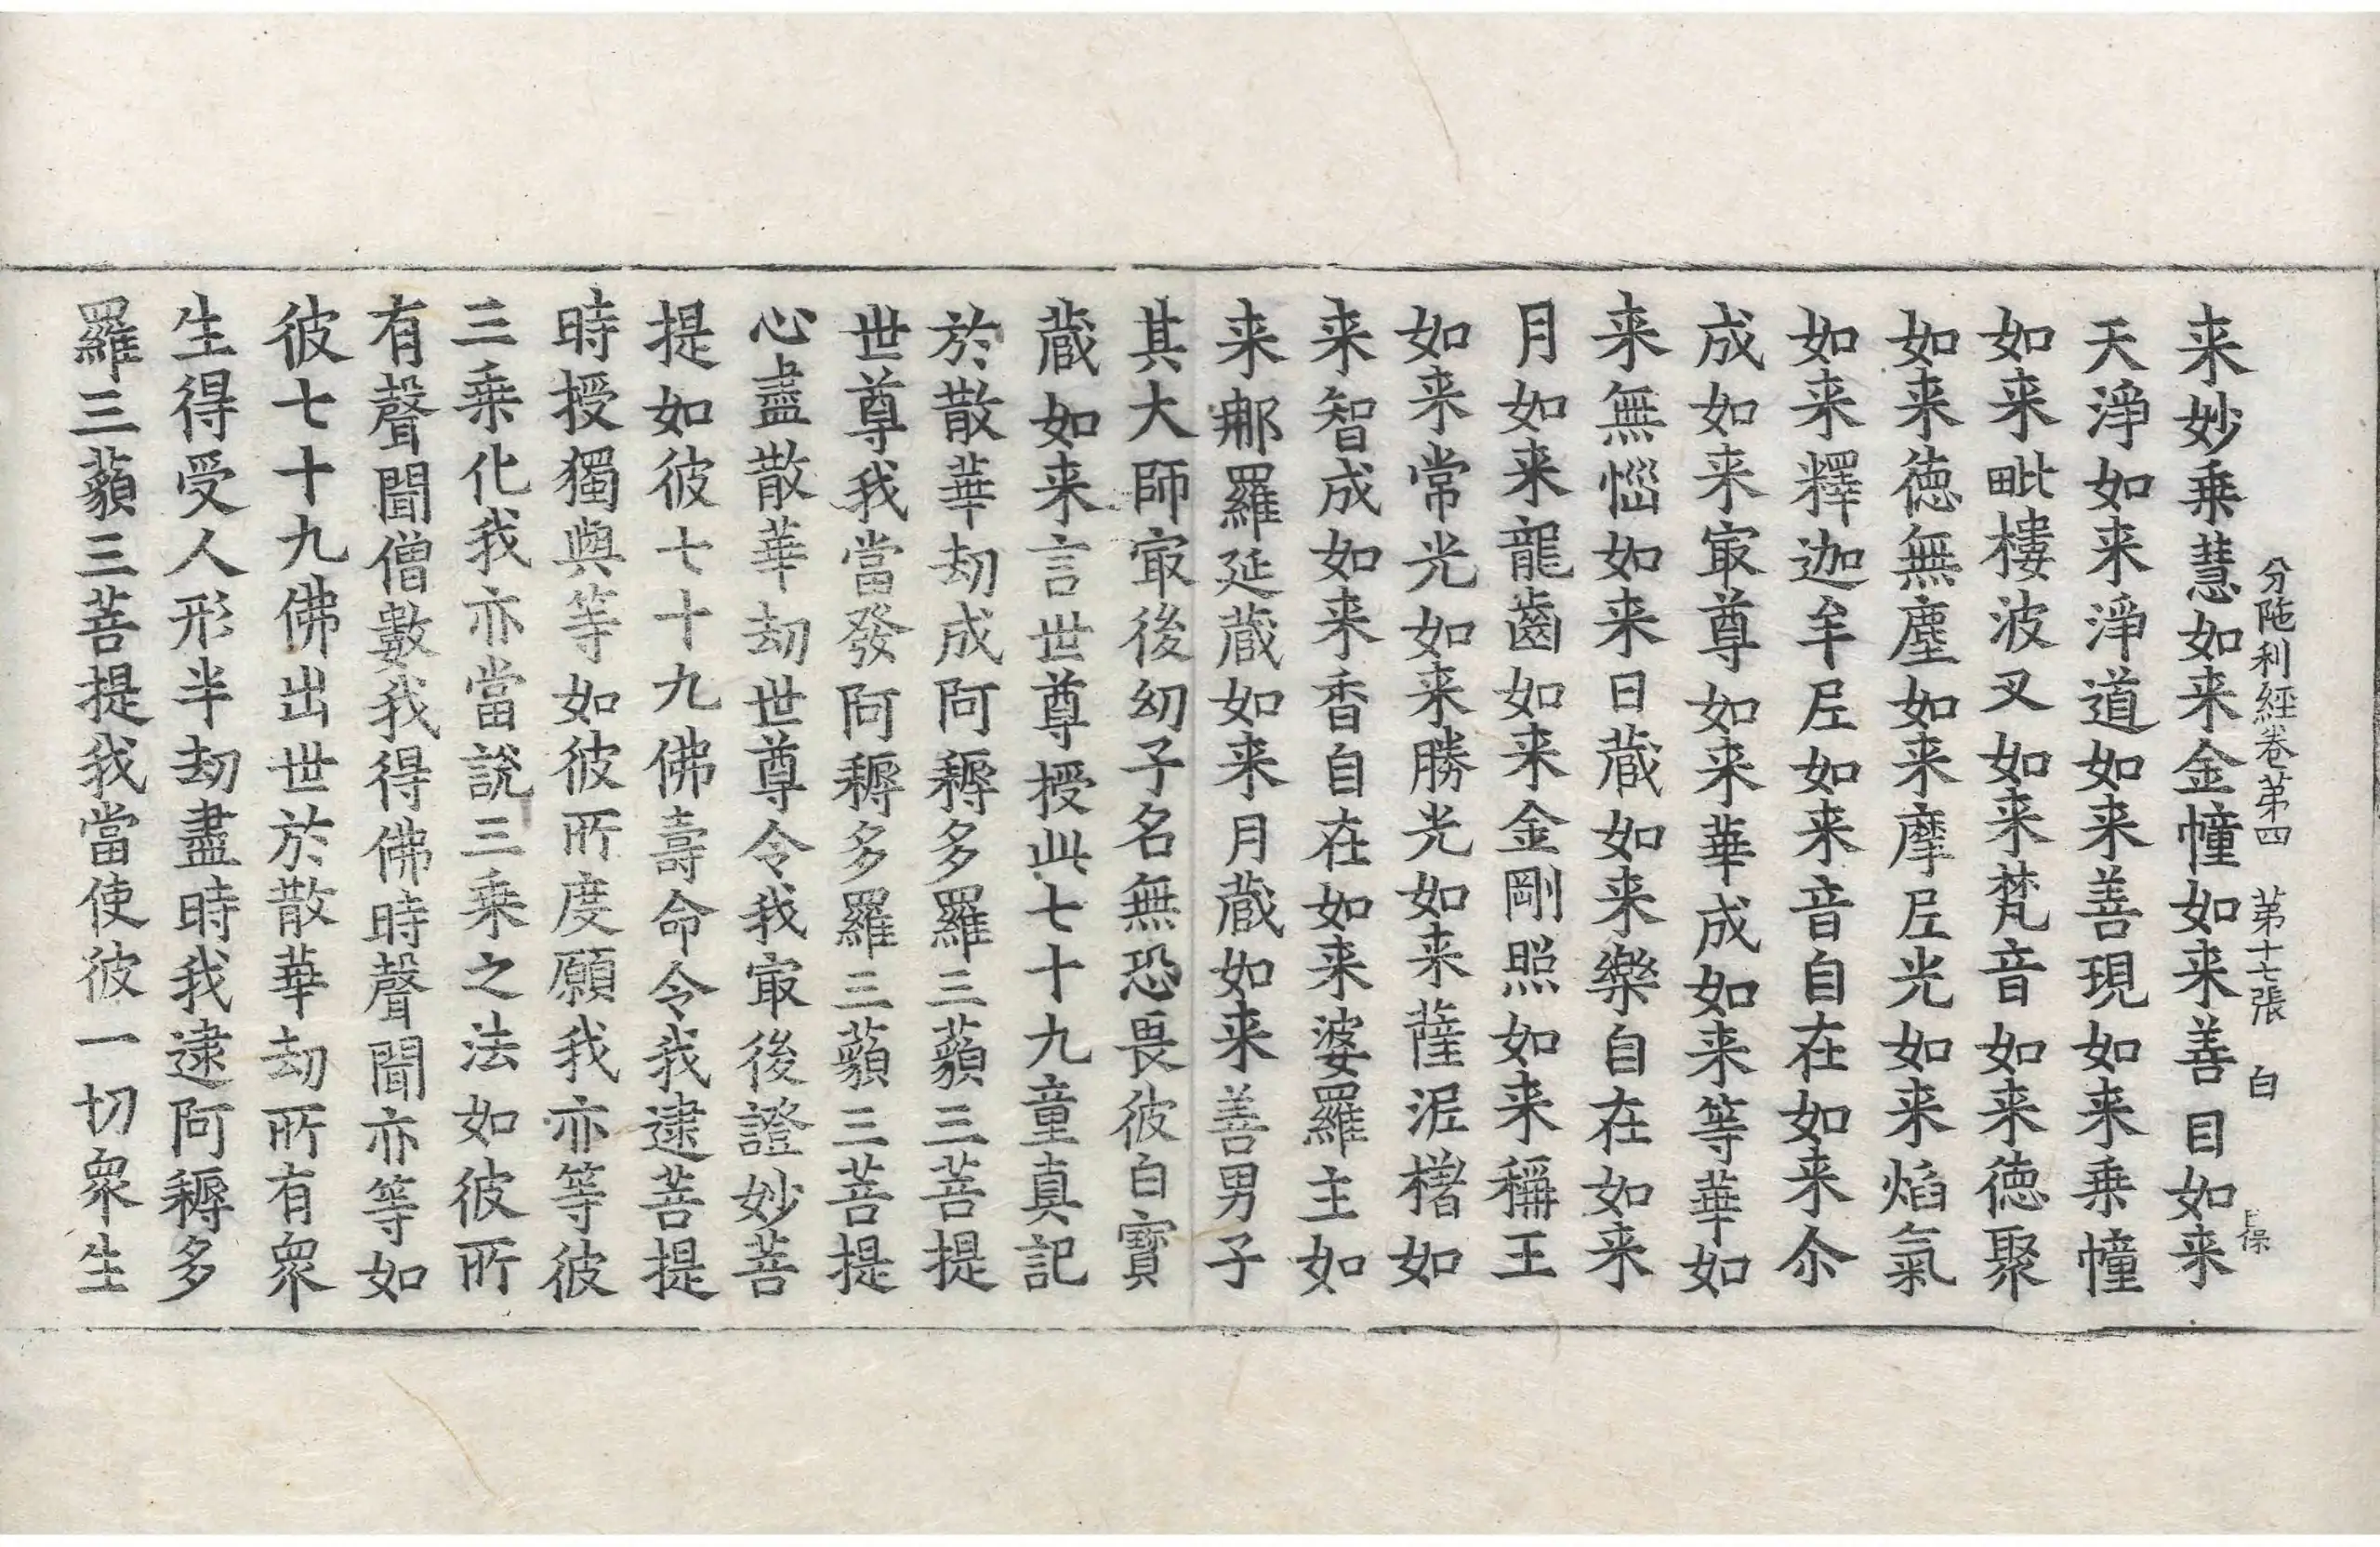 分陁利經卷第四 第十七張 白
来妙乗慧如来金幢如来善目如来
天淨如来淨道如来善現如来乗幢
如来毗樓波叉如来梵音如来徳聚
如来徳無塵如来摩𡰱光如来焰氣
如来釋迦牟𡰱如来音自在如来尒
成如来㝡尊如来華成如来等華如
来無㛴如来日蔵如来樂自在如来
月如来龍齒如来金剛照如来稱王
如来常光如来勝光如来薩泥㯼如
来智成如来香自在如来婆羅主如
来𨚗羅延蔵如来月蔵如来善男子
其大師㝡後㓜子名無恐畏彼白寳
蔵如来言世尊授此七十九童真記
於散華劫成阿耨多羅三藐三菩提
世尊我當發阿耨多羅三藐三菩提
心盡散華劫世尊令我㝡後證妙菩
提如彼七十九佛壽命令我逮菩提
時授獨與等如彼所度願我亦等彼
三乗化我亦當說三乗之法如彼所
有聲聞僧數我得佛時聲聞亦等如
彼七十九佛出世於散華劫所有衆
生得受人形半劫盡時我逮阿耨多
羅三藐三菩提我當使彼一切衆生